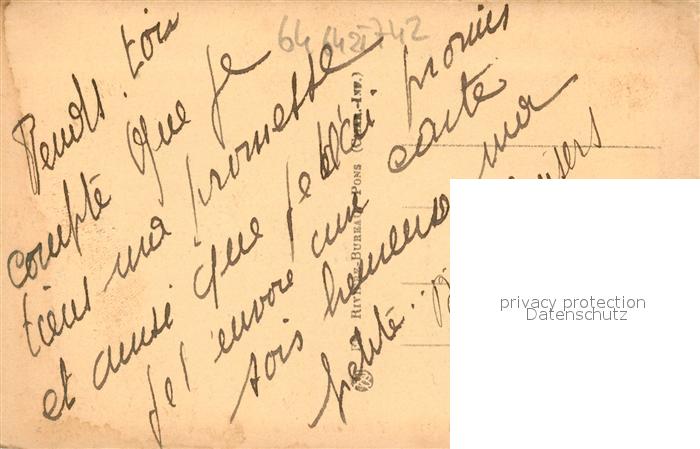 64 1421 742
Rends. toi
compte que je
tiens ma promesse
et aussi que je t'ai promis
je t'envoie une carte
sois heureuse ma
petite..
RIVIÈRE-BUREAU, PONS (CHAR.-INF.)
privacy protection
Datenschutz